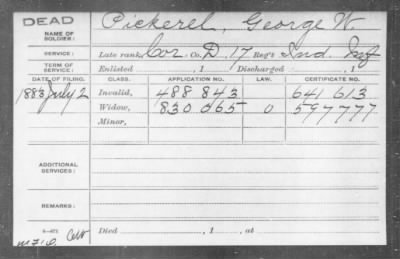 DEAD
NAME OF SOLDIER: Pickerel, George W.
SERVICE: Late rank, Cor Co. D, 17 Reg't Ind. Inf
TERM OF SERVICE: Enlisted , 1 Discharged , 1
DATE OF FILING. CLASS. APPLICATION NO. LAW. CERTIFICATE NO.
1883 July 2 Invalid, 488 843 641 613
Widow, 830 065 0 597777
Minor,
ADDITIONAL SERVICES:
REMARKS:
Died , 1 , at